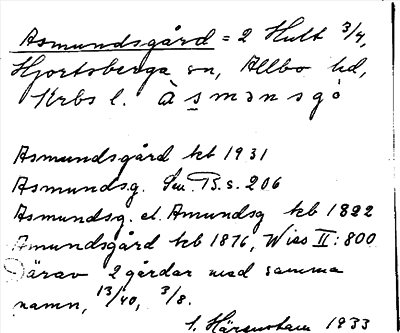 Asmundsgård = 2 Hult 3/4,
Hjortsberga sn, Allbo hd,
Krbs l. àsmənsgo
Asmundsgård kb 1931
Asmundsg. Sv. B. s. 206
Asmundsg. el. Amundsg kb 1822
Amundsgård kb 1876, Wiss II: 800
Därav 2 gårdar med samma
namn, 13/40, 3/8.
1933